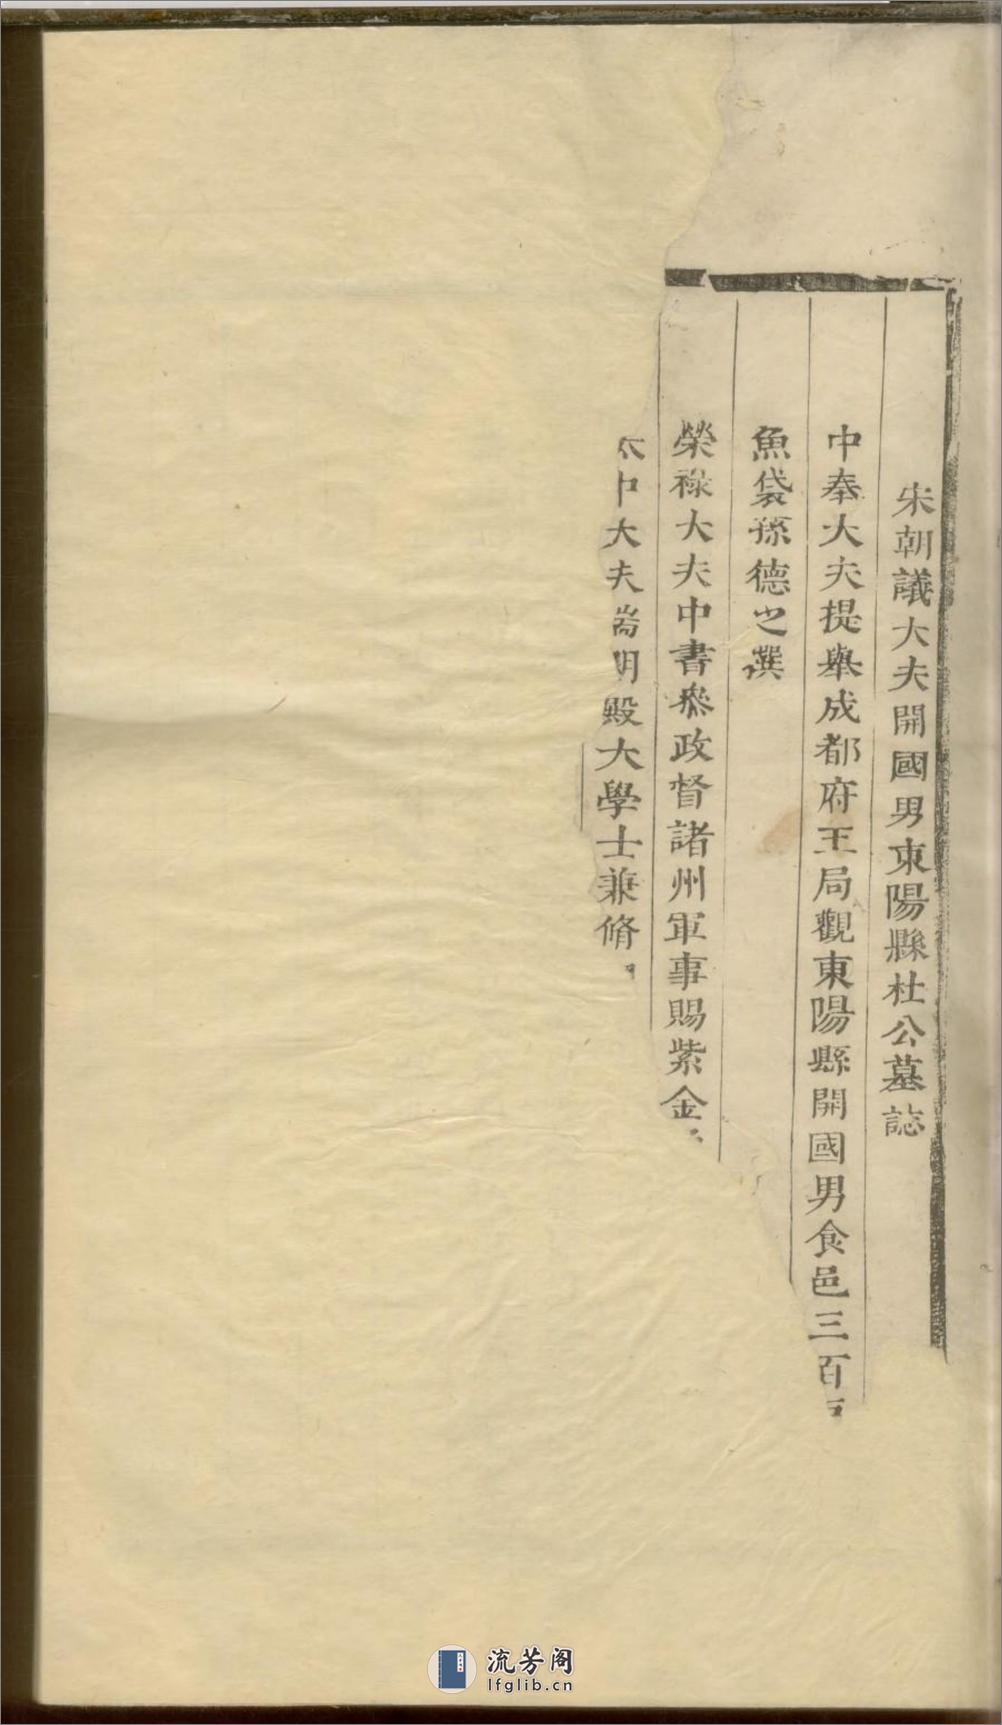 宋朝議大夫開國男東陽縣杜公墓誌
中奉大夫提舉成都府玉局觀東陽縣開國男食邑三百
魚袋孫德之撰
榮祿大夫中書叅政督諸州軍事賜紫金
太中大夫端明殿大學士兼脩
流芳阁
lfglib.cn